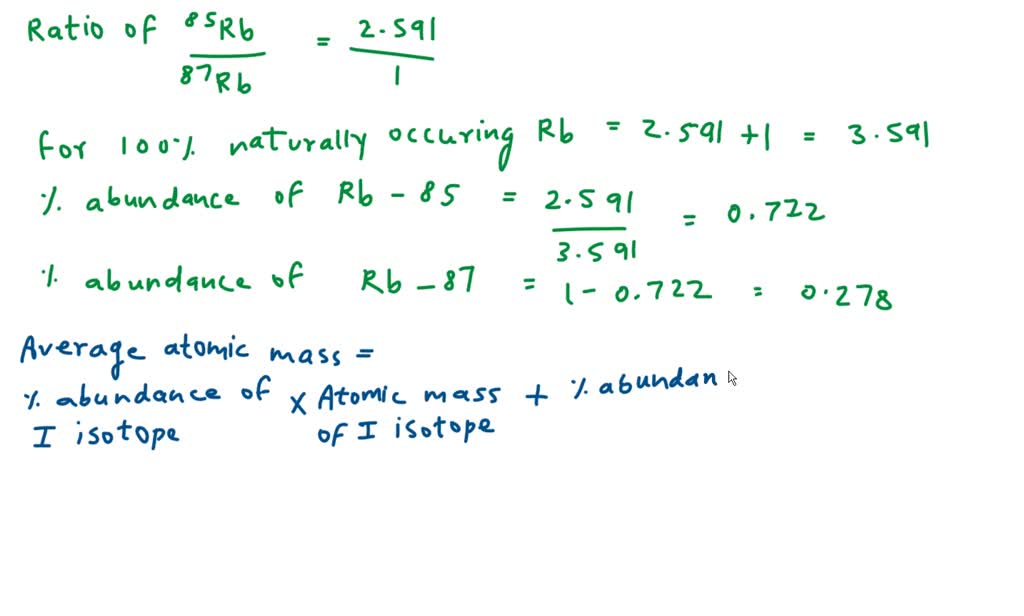 Ratio of ⁸⁵Rb / ⁸⁷Rb = 2.591 / 1
For 100% naturally occuring Rb = 2.591 + 1 = 3.591
% abundance of Rb - 85 = 2.591 / 3.591 = 0.722
% abundance of Rb - 87 = 1 - 0.722 = 0.278
Average atomic mass =
% abundance of × Atomic mass + % abundan
I isotope of I isotope